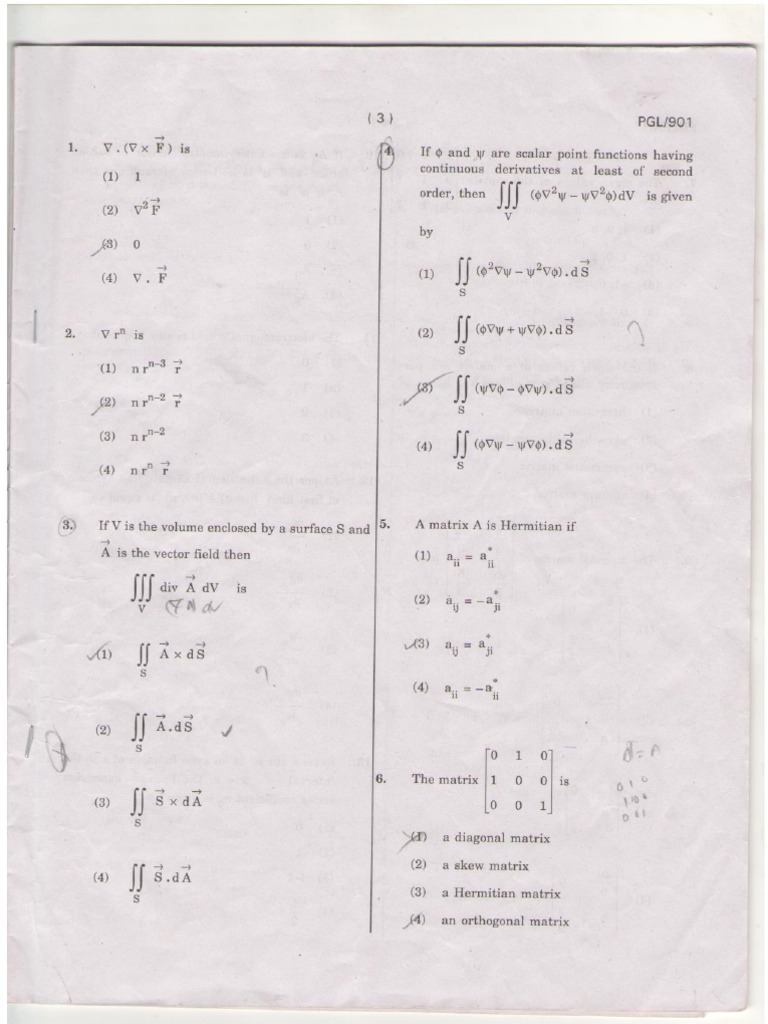 ( 3 )
PGL/901
1. ∇ . (∇ × F⃗ ) is
(1) 1
(2) ∇²F⃗
(3) 0
(4) ∇ . F⃗
2. ∇ rⁿ is
(1) n rⁿ⁻³ r⃗
(2) n rⁿ⁻² r⃗
(3) n rⁿ⁻²
(4) n rⁿ r⃗
3. If V is the volume enclosed by a surface S and
A⃗ is the vector field then
∭ div A⃗ dV is
V
(1) ∬ A⃗ × dS⃗
S
?
(2) ∬ A⃗ . dS⃗
S
(3) ∬ S⃗ × dA⃗
S
(4) ∬ S⃗ . dA⃗
S
4. If ϕ and ψ are scalar point functions having
continuous derivatives at least of second
order, then ∭ (ϕ∇²ψ – ψ∇²ϕ)dV is given
V
by
(1) ∬ (ϕ²∇ψ – ψ²∇ϕ) . dS⃗
S
(2) ∬ (ϕ∇ψ + ψ∇ϕ) . dS⃗
S
?
(3) ∬ (ψ∇ϕ – ϕ∇ψ) . dS⃗
S
(4) ∬ (ϕ∇ψ – ψ∇ϕ) . dS⃗
S
5. A matrix A is Hermitian if
(1) aᵢᵢ = a*ᵢᵢ
(2) aᵢⱼ = –a*ⱼᵢ
(3) aᵢⱼ = a*ⱼᵢ
(4) aᵢᵢ = –a*ᵢᵢ
6. The matrix [0 1 0
1 0 0
0 0 1] is
0 1 0
1 0 0
0 0 1
(1) a diagonal matrix
(2) a skew matrix
(3) a Hermitian matrix
(4) an orthogonal matrix